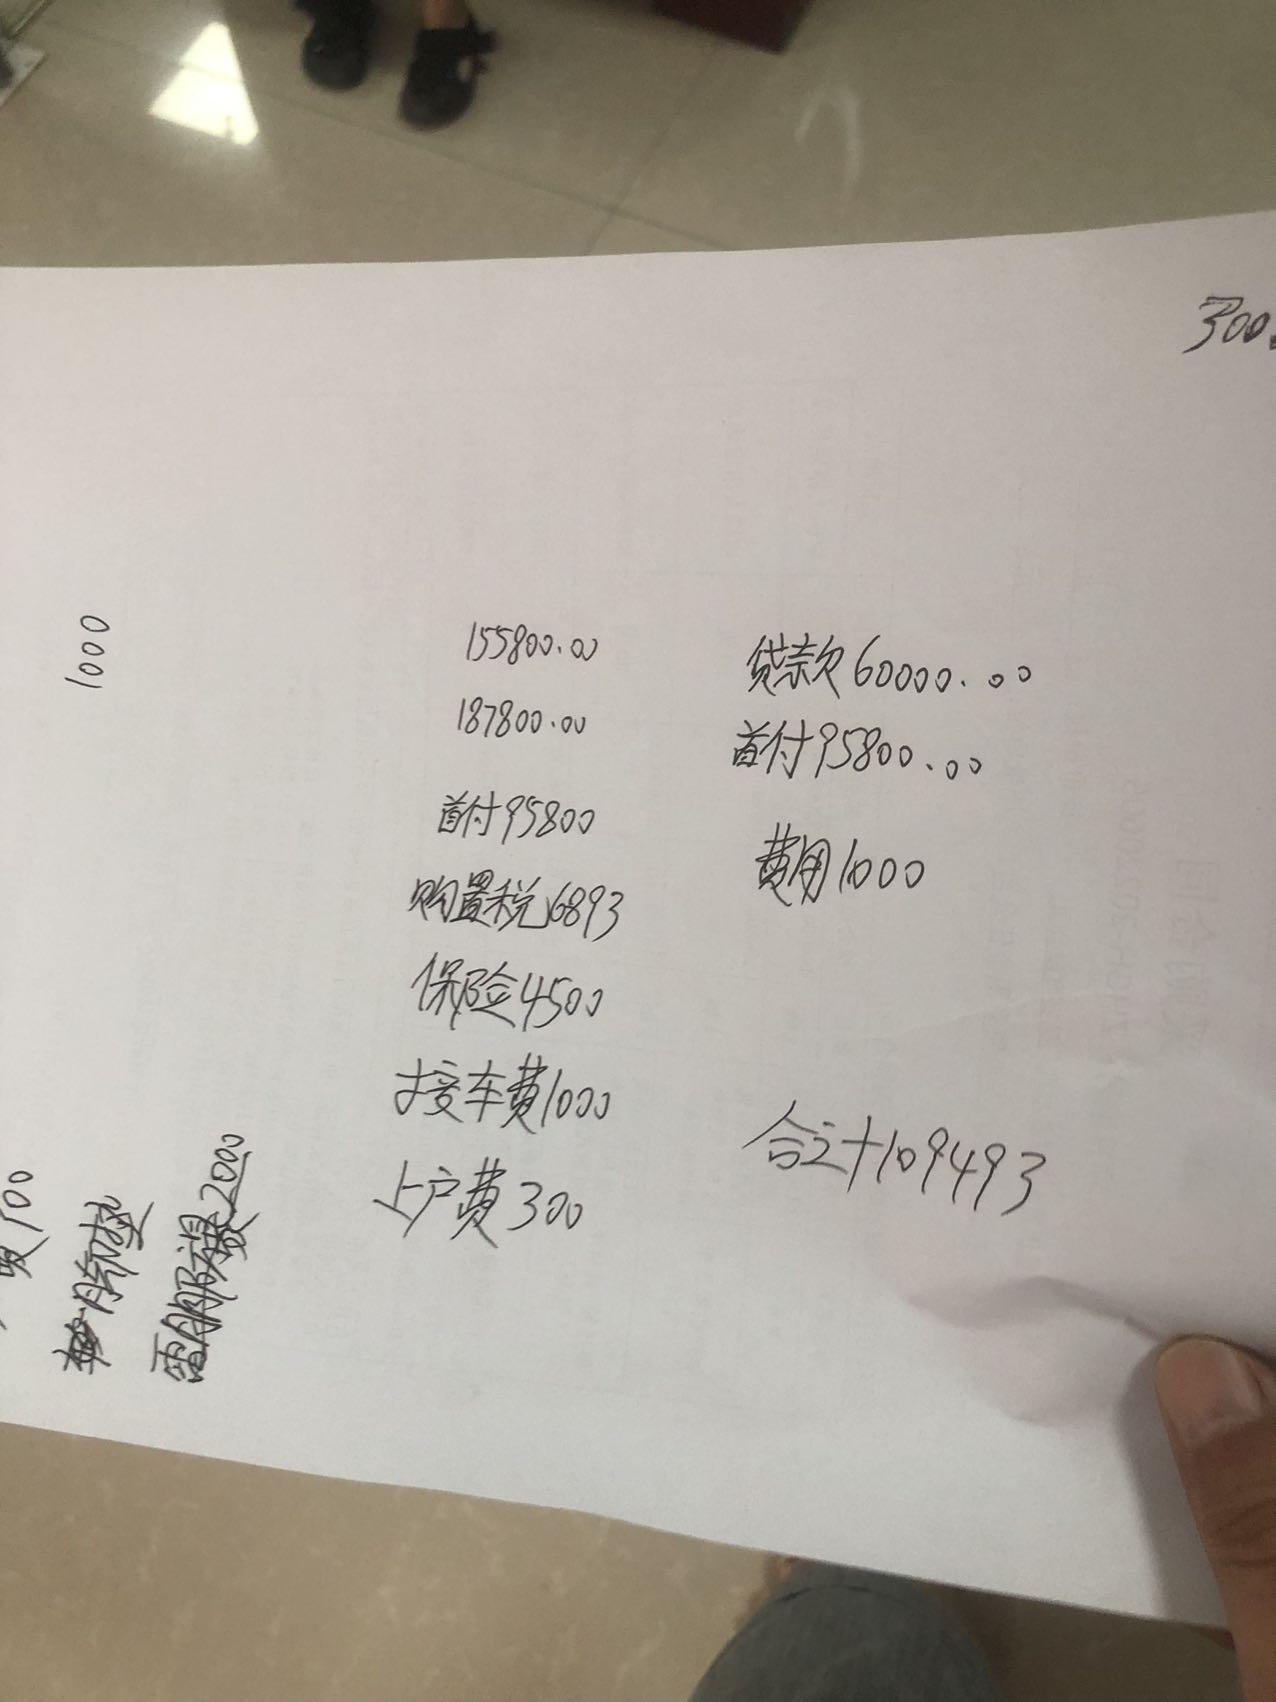 300
1000
155800.00
187800.00
首付95800
购置税6893
保险4500
接车费1000
上户费300
贷款60000.00
首付95800.00
费用1000
合计109493
费100
2000